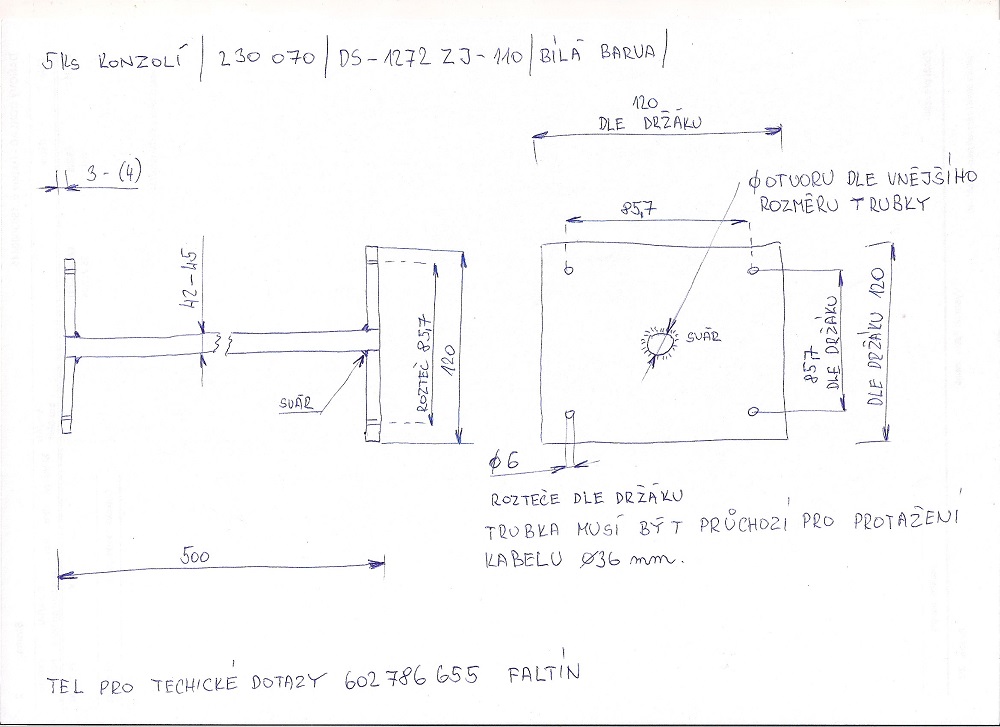 5KS KONZOLÍ | 230 070 | DS-1272 ZJ-110 | BÍLÁ BARVA |
120
DLE DRŽÁKU
3-(4)
ϕ OTVORU DLE VNĚJŠÍHO
ROZMĚRU TRUBKY
85,7
42-45
ROZTEČ 85,7
120
SVÁR
SVÁR
857
DLE DRŽÁKU
DLE DRŽÁKU 120
ϕ6
ROZTEČE DLE DRŽÁKU
TRUBKA MUSÍ BÝT PRŮCHOZÍ PRO PROTAŽENÍ
KABELU Ø36 mm.
500
TEL PRO TECHICKÉ DOTAZY 602 786 655 FALTÍN